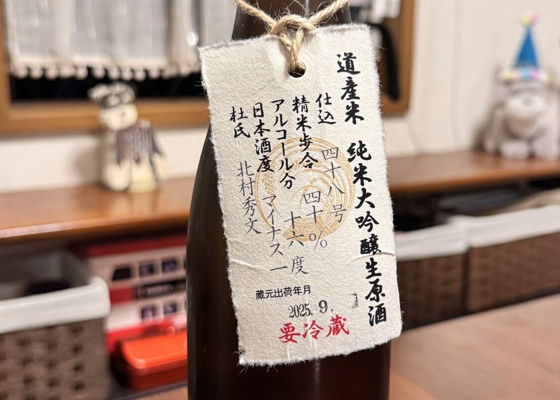 道産米 純米大吟醸生原酒
仕込 四十八号
精米歩合 四十%
アルコール分 十六度
日本酒度 マイナス一
杜氏 北村秀文
蔵元出荷年月
2025. 9.
要冷蔵